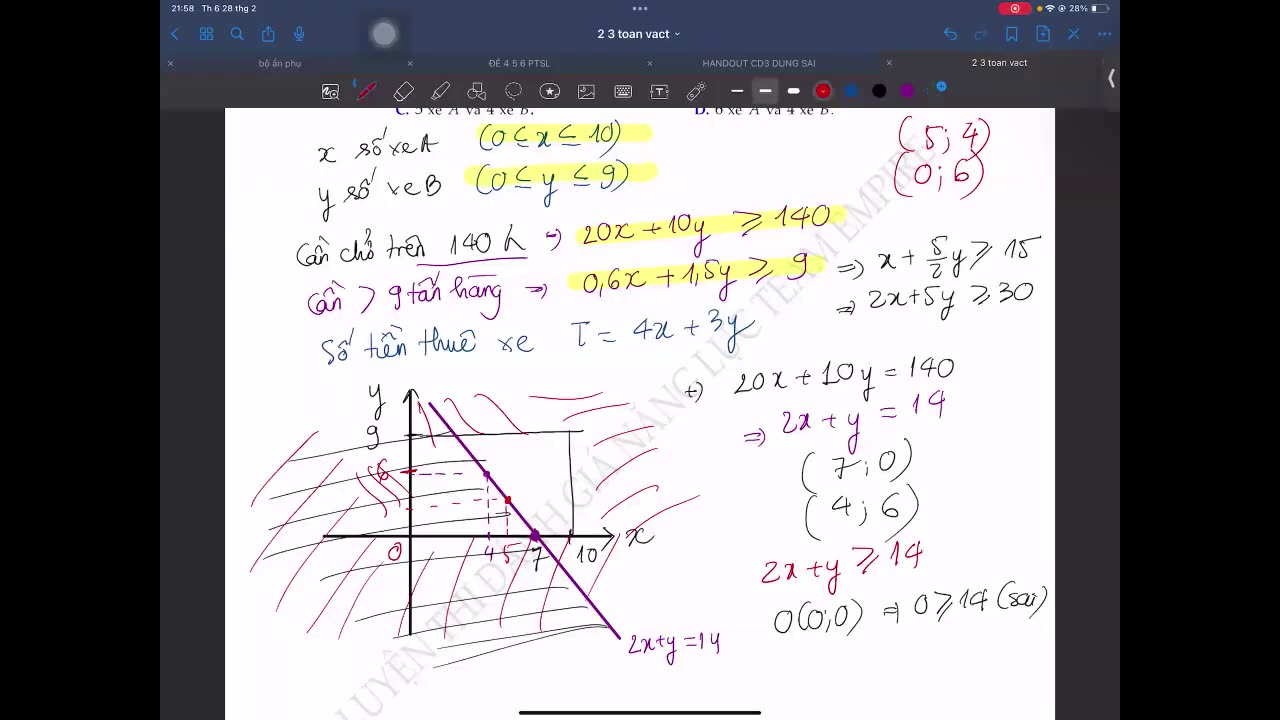 21:58 Th 6 28 thg 2
28%
2 3 toan vact
bộ ấn phụ
ĐỀ 4 5 6 PTSL
HANDOUT CD3 DUNG SAI
2 3 toan vact
C. 5 xe A và 4 xe B.
D. 6 xe A và 4 xe B.
x số xe A (0 ≤ x ≤ 10)
y số xe B (0 ≤ y ≤ 9)
(5; 4)
(0; 6)
Cần chở trên 140 h → 20x + 10y ≥ 140
Cần > 9 tấn hàng ⇒ 0,6x + 1,5y ≥ 9 ⇒ x + 5/2 y ≥ 15
⇒ 2x + 5y ≥ 30
Số tiền thuê xe T = 4x + 3y
+) 20x + 10y = 140
⇒ 2x + y = 14
(7; 0)
(4; 6)
2x + y ≥ 14
O(0; 0) ⇒ 0 ≥ 14 (sai)
y
9
6
0 4 5 7 10 x
2x + y = 14
LUYỆN THI ĐÁNH GIÁ NĂNG LỰC TEAM EMPIRE